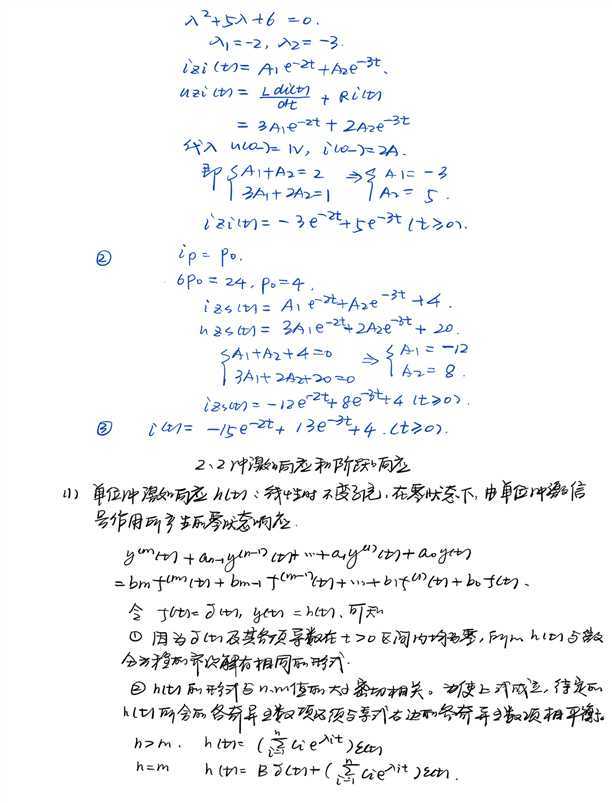 λ²+5λ+6 =0.
λ₁=-2, λ₂=-3.
izi(t)= A₁e^-2t+A₂e^-3t.
uzi(t)= L di(t)/dt + Ri(t)
= 3A₁e^-2t + 2A₂e^-3t
代入 u(0-)=1V, i(0-)=2A.
即 { A₁+A₂=2 ⇒ { A₁=-3
3A₁+2A₂=1 A₂= 5.
izi(t)= -3e^-2t+5e^-3t (t≥0).
② ip= P₀.
6P₀=24, P₀=4.
izs(t)= A₁e^-2t+A₂e^-3t+4.
uzs(t)= 3A₁e^-2t+2A₂e^-3t+20.
{ A₁+A₂+4=0 ⇒ { A₁=-12
3A₁+2A₂+20=0 A₂= 8.
izs(t)= -12e^-2t+8e^-3t+4 (t≥0).
③ i(t)= -15e^-2t+ 13e^-3t+4. (t≥0).
2.2 冲激响应和阶跃响应
(1) 单位冲激响应 h(t): 线性时不变系统, 在零状态下, 由单位冲激信
号作用所产生的零状态响应.
y^(n)(t) + an-1y^(n-1)(t)+…+a₁y^(1)(t)+a₀y(t)
=bmf^(m)(t)+bm-1f^(m-1)(t)+…+b₁f^(1)(t)+b₀f(t).
令 f(t)=δ(t), y(t)=h(t). 可知
① 因为δ(t)及其各项导数在t>0区间内均为零, 所以h(t)与微
分方程的齐次解有相同的形式.
② h(t)的形式与n.m值的大小密切相关。为使上式成立, 待定的
h(t)所含的各奇异函数项必须与等式右边的各奇异函数项相平衡。
n>m. h(t)= (Σⁿᵢ₌₁ Cie^λit)ε(t)
n=m h(t)= Bδ(t)+(Σⁿᵢ₌₁ Cie^λit)ε(t).